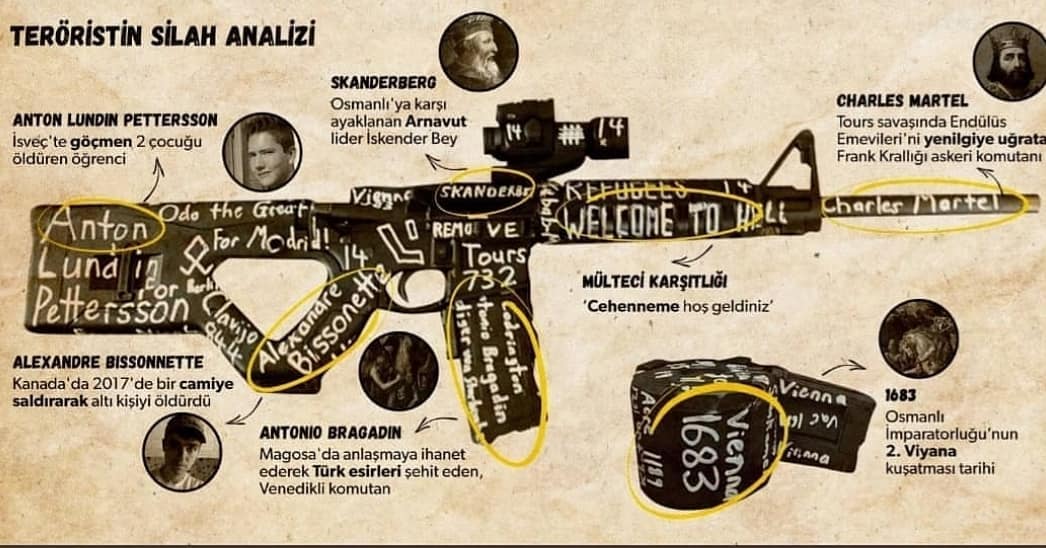 TERÖRİSTİN SİLAH ANALİZİ
SKANDERBERG
Osmanlı'ya karşı
ayaklanan Arnavut
lider İskender Bey
CHARLES MARTEL
Tours savaşında Endülüs
Emevileri'ni yenilgiye uğrata
Frank Krallığı askeri komutanı
ANTON LUNDIN PETTERSSON
İsveç'te göçmen 2 çocuğu
öldüren öğrenci
14
14
Vienna
SKANDERBE
REFUGEES 14
WELCOME TO HELL
Charles Martel
Anton
Lundin
Pettersson
Odo the Great
For Madrid!
REMOVE
14
Tours
732
For
Clavijo
Alexandre
Bissonette
Bragadin
MÜLTECİ KARŞITLIĞI
'Cehenneme hoş geldiniz'
ALEXANDRE BISSONNETTE
Kanada'da 2017'de bir camiye
saldırarak altı kişiyi öldürdü
ANTONIO BRAGADIN
Magosa'da anlaşmaya ihanet
ederek Türk esirleri şehit eden,
Venedikli komutan
Vienna
1683
Acre
1189
Vienna
1683
Osmanlı
İmparatorluğu'nun
2. Viyana
kuşatması tarihi